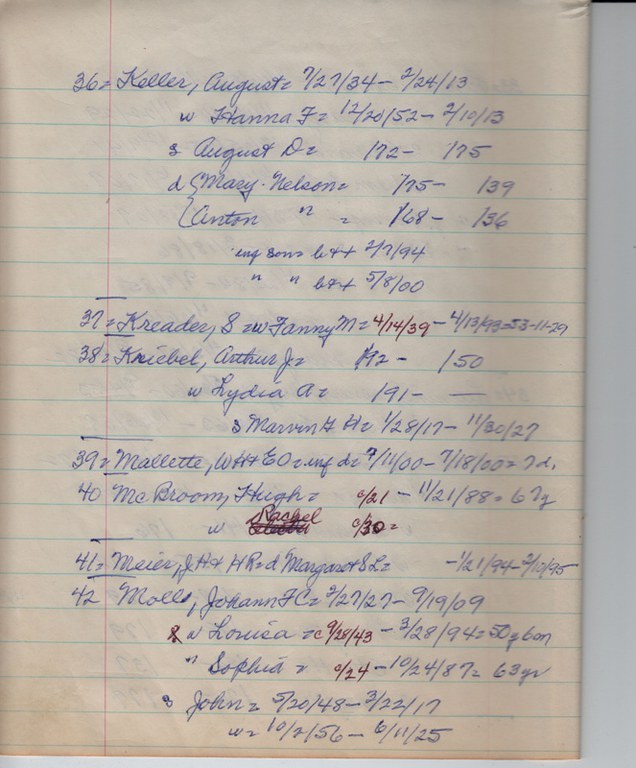 36 = Keller, August = 7/27/34 - 2/24/13
w Hanna F = 12/20/52 - 2/10/13
s August D = 1872 - 1875
d { Mary. Nelson = 1/75 - 1/39
{ Anton " = 1/68 - 1/36
inf sons b & + 2/7/94
" " b & + 5/8/00
37 = Kreader, S = w Fanny M = 4/14/39 - 4/13/93 = 53-11-29
38 = Kniebel, Arthur J = 1/92 - 1/50
w Lydia A = 1/91 - —
s Marvin H = 1/28/17 - 11/30/27
39 = Mallette, WH & EO = inf d = 7/11/00 - 7/18/00 = 7 d.
40 McBroom, Hugh = c/21 - 11/21/88 = 67y
w Rachel c/30 =
41 = Meier, JH & HR = d Margaret SL = - 1/21/94 - 2/10/95
42 Moll, Johann FC = 2/27/27 - 9/19/09
w Louisa = c 9/28/43 - 3/28/94 = 50y 6m
" Sophia = c/24 - 10/24/87 = 63yr
s John = 5/20/48 - 3/22/17
w = 10/2/56 - 6/11/25